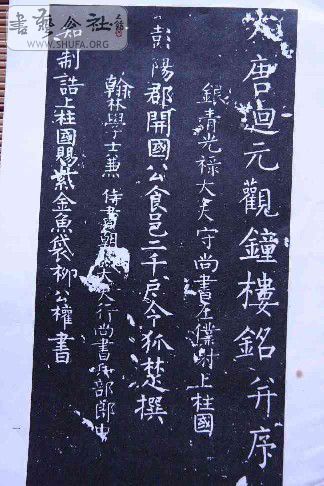 大唐迴元觀鐘樓銘并序
銀青光祿大夫守尚書左僕射上柱國
彭陽郡開國公食邑二千戶令狐楚撰
翰林學士兼侍書朝議大夫行尚書兵部郎中
知制誥上柱國賜紫金魚袋柳公權書
書藝公社
WWW.SHUFA.ORG